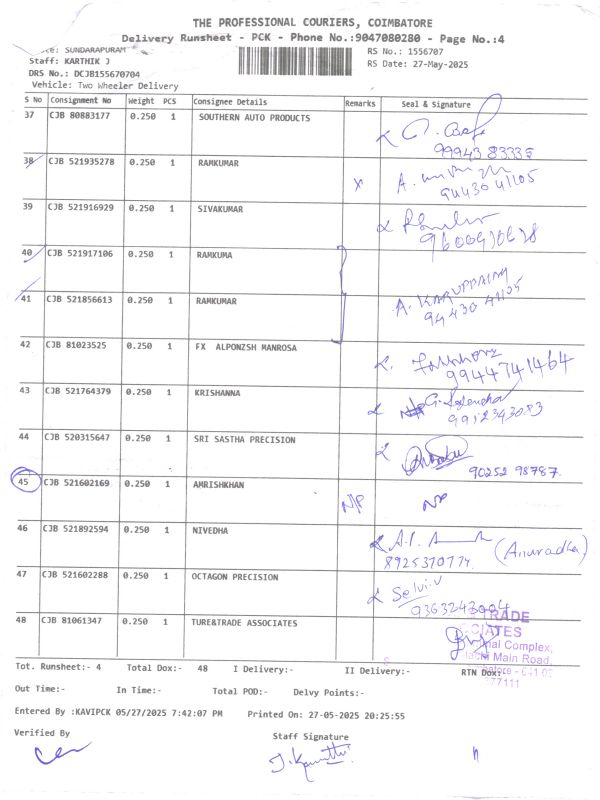 THE PROFESSIONAL COURIERS, COIMBATORE
Delivery Runsheet - PCK - Phone No.:9047080280 - Page No.:4
SUNDARAPURAM RS No.: 1556707
Staff: KARTHIK J RS Date: 27-May-2025
DRS No.: DCJB155670704
Vehicle: Two Wheeler Delivery
S No Consignment No Weight PCS Consignee Details Remarks Seal & Signature
37 CJB 80883177 0.250 1 SOUTHERN AUTO PRODUCTS
99943 83335
38 CJB 521935278 0.250 1 RAMKUMAR X A.
94430 41105
39 CJB 521916929 0.250 1 SIVAKUMAR
40 CJB 521917106 0.250 1 RAMKUMA
41 CJB 521856613 0.250 1 RAMKUMAR A. KARUPPAIAH
42 CJB 81023525 1 FX ALPONZSH MANROSA
9944741464
43 CJB 521764379 0.250 1 KRISHANNA
9912343083
44 CJB 520315647 0.250 1 SRI SASTHA PRECISION
90252 98787.
45 CJB 521602169 0.250 1 AMRISHKHAN N/P N/P
46 CJB 521892594 0.250 1 NIVEDHA (Anuradha)
8925370774
47 CJB 521602288 0.250 1 OCTAGON PRECISION Selvi.V
9363243004
48 CJB 81061347 0.250 1 TURE&TRADE ASSOCIATES TRADE
CIATES
Complex,
Main Road,
Tot. Runsheet:- 4 Total Dox:- 48 I Delivery:- II Delivery:- RTN Dox:-
77111
Out Time:- In Time:- Total POD:- Delvy Points:-
Entered By :KAVIPCK 05/27/2025 7:42:07 PM Printed On: 27-05-2025 20:25:55
Verified By Staff Signature